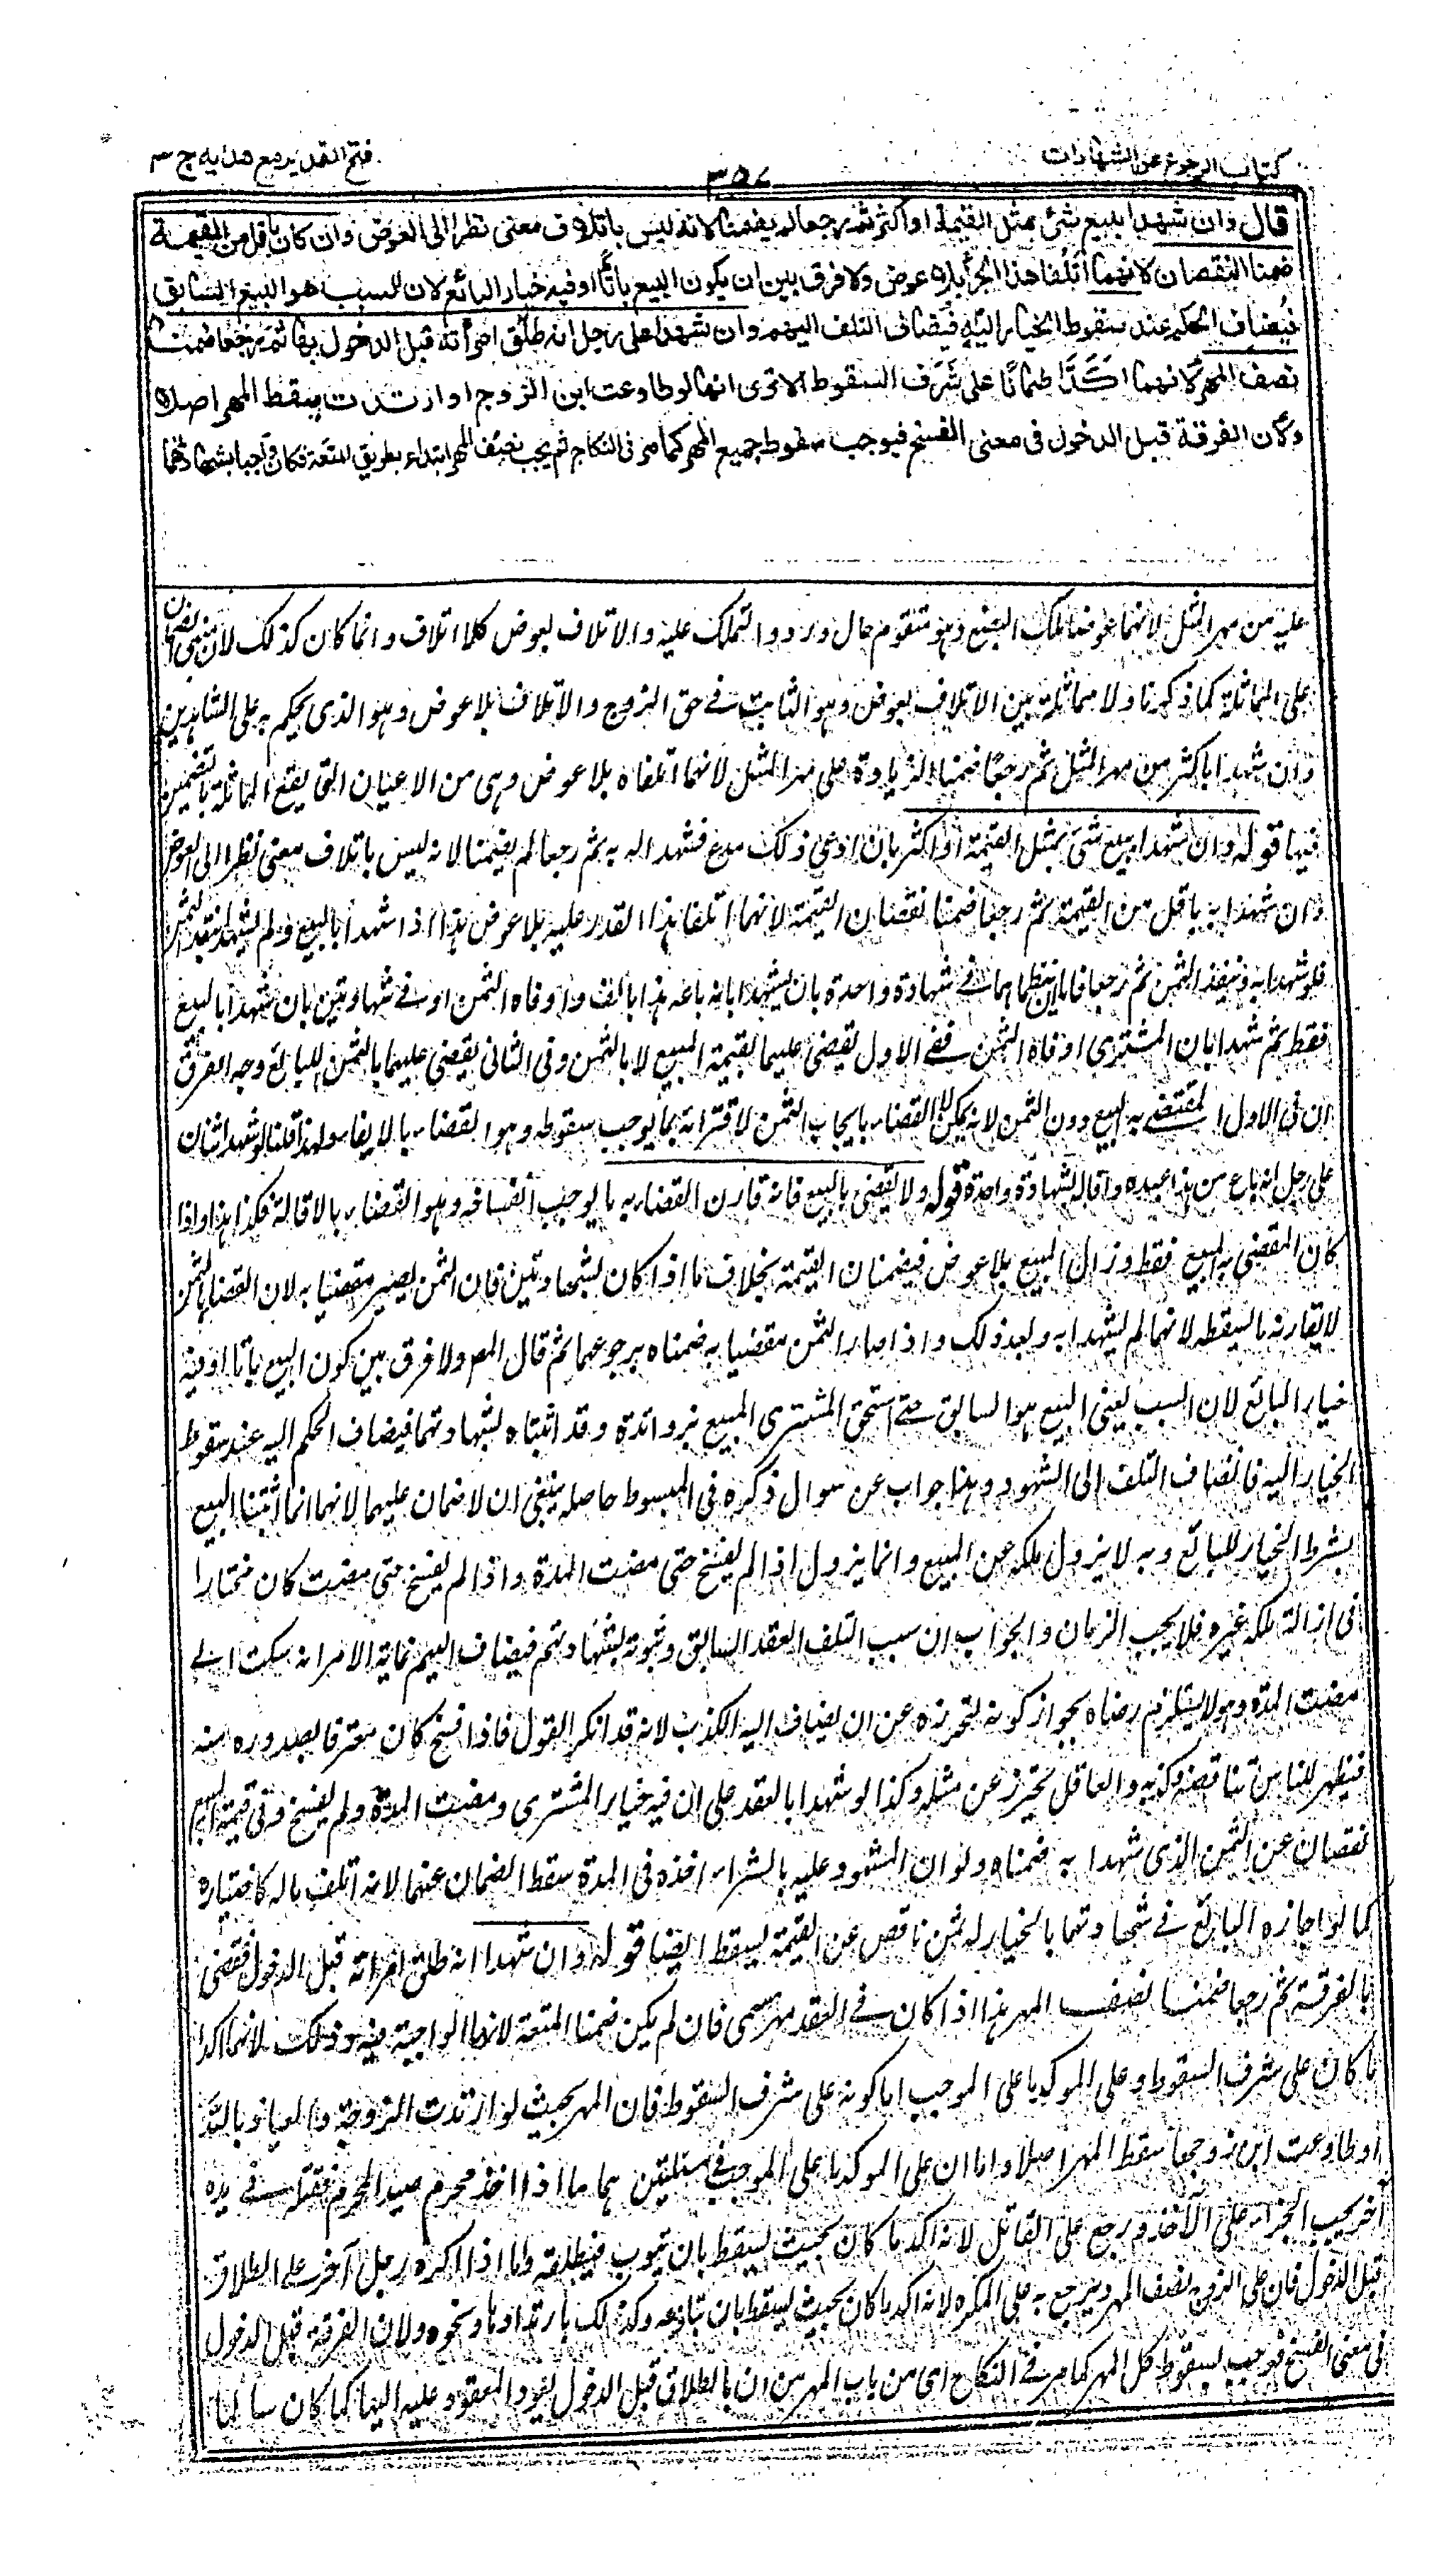 كتاب الرجوع عن الشهادات
٣٥٧
فتح القدير مع هدايه ج ٣
قال وان شهدا ببيع شئ بمثل القيمة او اكثر ثم رجعا لم يضمنا لانه ليس باتلاف معنى نظرا الى العوض وان كان باقل من القيمة
ضمنا النقصان لانهما اتلفا هذا الجزء بلا عوض ولا فرق بين ان يكون البيع باتًّا او فيه خيار البائع لان السبب هو البيع السابق
فيُضاف الحكم عند سقوط الخيار اليه فيضاف التلف اليهم وان شهدا على رجل انه طلّق امرأته قبل الدخول بها ثم رجعا ضمنا
نصف المهر لانهما اكَّدا ضمانًا على شَرَف السقوط الا ترى انها لو طاوعت ابن الزوج او ارتدت يسقط المهر اصلا
ولأن الفرقة قبل الدخول فى معنى الفسخ فيوجب سقوط جميع المهر كما مر فى النكاح ثم يجب نصف المهر ابتداء بطريق المتعة فكان واجبا بشهادتهما
عليه من مهر المثل لانهما عوضا ملك البضع وهو متقوم حال ورود التملك عليه والاتلاف بعوض كلا اتلاف وانما كان كذلك لان مبنى الضمان
على المماثلة كما ذكرنا ولا مماثلة بين الاتلاف بعوض وهو الثابت فى حق الزوج والاتلاف بلا عوض وهو الذى يحكم به على الشاهدين
وان شهدا باكثر من مهر المثل ثم رجعا ضمنا الزيادة على مهر المثل لانهما اتلفاه بلا عوض وهى من الاعيان التى يقع المماثلة بالتضمين
فيها قوله وان شهدا ببيع شئ بمثل القيمة او اكثر بان ادعى ذلك مدع فشهدا له به ثم رجعا لم يضمنا لانه ليس باتلاف معنى نظرا الى العوض
وان شهدا به باقل من القيمة ثم رجعا ضمنا نقصان القيمة لانهما اتلفا هذا القدر عليه بلا عوض هذا اذا شهدا بالبيع ولم يشهدا بنقد الثمن
فلو شهدا به وبنقد الثمن ثم رجعا فاما ان ينظماهما فى شهادة واحدة بان يشهدا بانه باعه هذا بالف واوفاه الثمن او فى شهادتين بان شهدا بالبيع
فقط ثم شهدا بان المشترى اوفاه الثمن ففى الاول يقضى عليهما بقيمة المبيع لا بالثمن وفى الثانى يقضى عليهما بالثمن للبائع وجه الفرق
ان فى الاول المقضى به البيع دون الثمن لانه لا يمكن القضاء بايجاب الثمن لاقترانه بما يوجب سقوطه وهو القضاء بالايفاء ولهذا قلنا لو شهد اثنان
على رجل انه باع من هذا عبده واقاله بشهادة واحدة قوله ولا يقضى بالبيع فانه قارن القضاء به ما يوجب انفساخه وهو القضاء بالاقالة فكذا هذا واذا
كان المقضى به البيع فقط وزال المبيع بلا عوض فيضمنان القيمة بخلاف ما اذا كان بشهادتين فان الثمن يصير مقضيا به لان القضاء بالثمن
لا يقارنه ما يسقطه لانهما لم يشهدا به وبعد ذلك واذا صار الثمن مقضيا به ضمناه برجوعهما ثم قال المص ولا فرق بين كون البيع باتا او فيه
خيار البائع لان السبب يعنى البيع هو السابق حتى استحق المشترى المبيع بزوائده وقد اثبتاه بشهادتهما فيضاف الحكم اليه عند سقوط
الخيار اليه فانضاف التلف الى الشهود وهذا جواب عن سوال ذكره فى المبسوط حاصله ينبغى ان لا ضمان عليهما لانهما انما اثبتا البيع
بشرط الخيار للبائع وبه لا يزول ملكه عن المبيع وانما يزول اذا لم يفسخ حتى مضت المدة واذا لم يفسخ حتى مضت كان مختارا
فى ازالة ملكه غيره فلا يجب الزمان والجواب ان سبب التلف العقد السابق وثبوته بشهادتهم فيضاف اليهم نهاية الامر انه سكت الى
مضت المدة وهو لا يستلزم رضاه بجواز كونه لتحرزه عن ان يضاف اليه الكذب لانه قد انكر القول فاذا فسخ كان معترفا بصدوره منه
فيظهر للناس تناقضه وكذبه والعاقل يتحرز عن مثله وكذا لو شهدا بالعقد على ان فيه خيار المشترى ومضت المدة ولم يفسخ وفى قيمة المبيع
نقصان عن الثمن الذى شهدا به ضمناه ولو ان المشهود عليه بالشراء اخذه فى المدة سقط الضمان عنهما لانه اتلف ماله كاختياره
كما لو اجازه البائع فى شهادتهما بالخيار له بثمن ناقص عن القيمة يسقط ايضا قوله وان شهدا انه طلق امرأته قبل الدخول فقضى
بالفرقة ثم رجعا ضمنا نصف المهر هذا اذا كان فى العقد مهر مسمى فان لم يكن ضمنا المتعة لانها الواجبة فيه وذلك لانهما اكدا
ما كان على شرف السقوط وعلى الموكد ما على الموجب اما كونه على شرف السقوط فان المهر بحيث لو ارتدت الزوجة والعياذ بالله
او طاوعت ابن زوجها سقط المهر اصلا واما ان على الموكد ما على الموجب فى مسئلتين هما ما اذا اخذ محرم صيد الحرم فقتله فى يده
آخر يجب الجزاء على الآخذ ورجع على القاتل لانه اكد ما كان بحيث يسقط بان يتوب فيطلقه واما اذا اكره رجل آخر على الطلاق
قبل الدخول فان على الزوج نصف المهر ويرجع به على المكره لانه اكد ما كان بحيث يسقط بان وكذلك بارتدادها ونحوه ولان الفرقة قبل الدخول
فى معنى الفسخ فيوجب بسقوط كل المهر كما مر فى النكاح اى من باب المهر من ان بالطلاق قبل الدخول يعود المعقود عليه اليها كما كان سالما